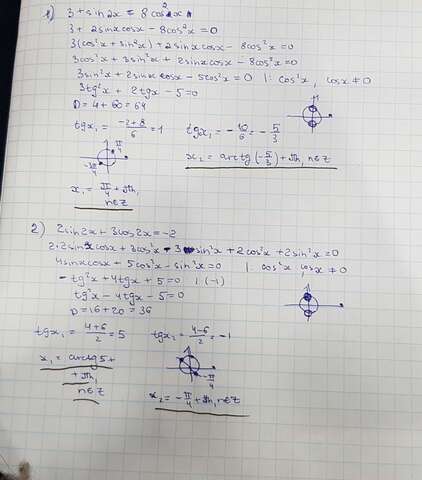 1) 3 + sin2x = 8cos²x
3 + 2sinxcosx - 8cos²x = 0
3(cos²x + sin²x) + 2sinxcosx - 8cos²x = 0
3cos²x + 3sin²x + 2sinxcosx - 8cos²x = 0
3sin²x + 2sinxcosx - 5cos²x = 0 |: cos²x, cosx ≠ 0
3tg²x + 2tgx - 5 = 0
D = 4 + 60 = 64
tgx₁ = (-2+8)/6 = 1 tgx₂ = -10/6 = -5/3
π/4
-3π/4
x₂ = arctg(-5/3) + πn, n∈Z
x₁ = π/4 + πn,
n∈Z
2) 2sin2x + 3cos2x = -2
2·2sinxcosx + 3cos²x - 3sin²x + 2cos²x + 2sin²x = 0
4sinxcosx + 5cos²x - sin²x = 0 |: cos²x, cosx ≠ 0
-tg²x + 4tgx + 5 = 0 | (-1)
tg²x - 4tgx - 5 = 0
D = 16 + 20 = 36
tgx₁ = (4+6)/2 = 5 tgx₂ = (4-6)/2 = -1
-π/4
x₁ = arctg5 +
+ πn,
n∈Z
x₂ = -π/4 + πn, n∈Z